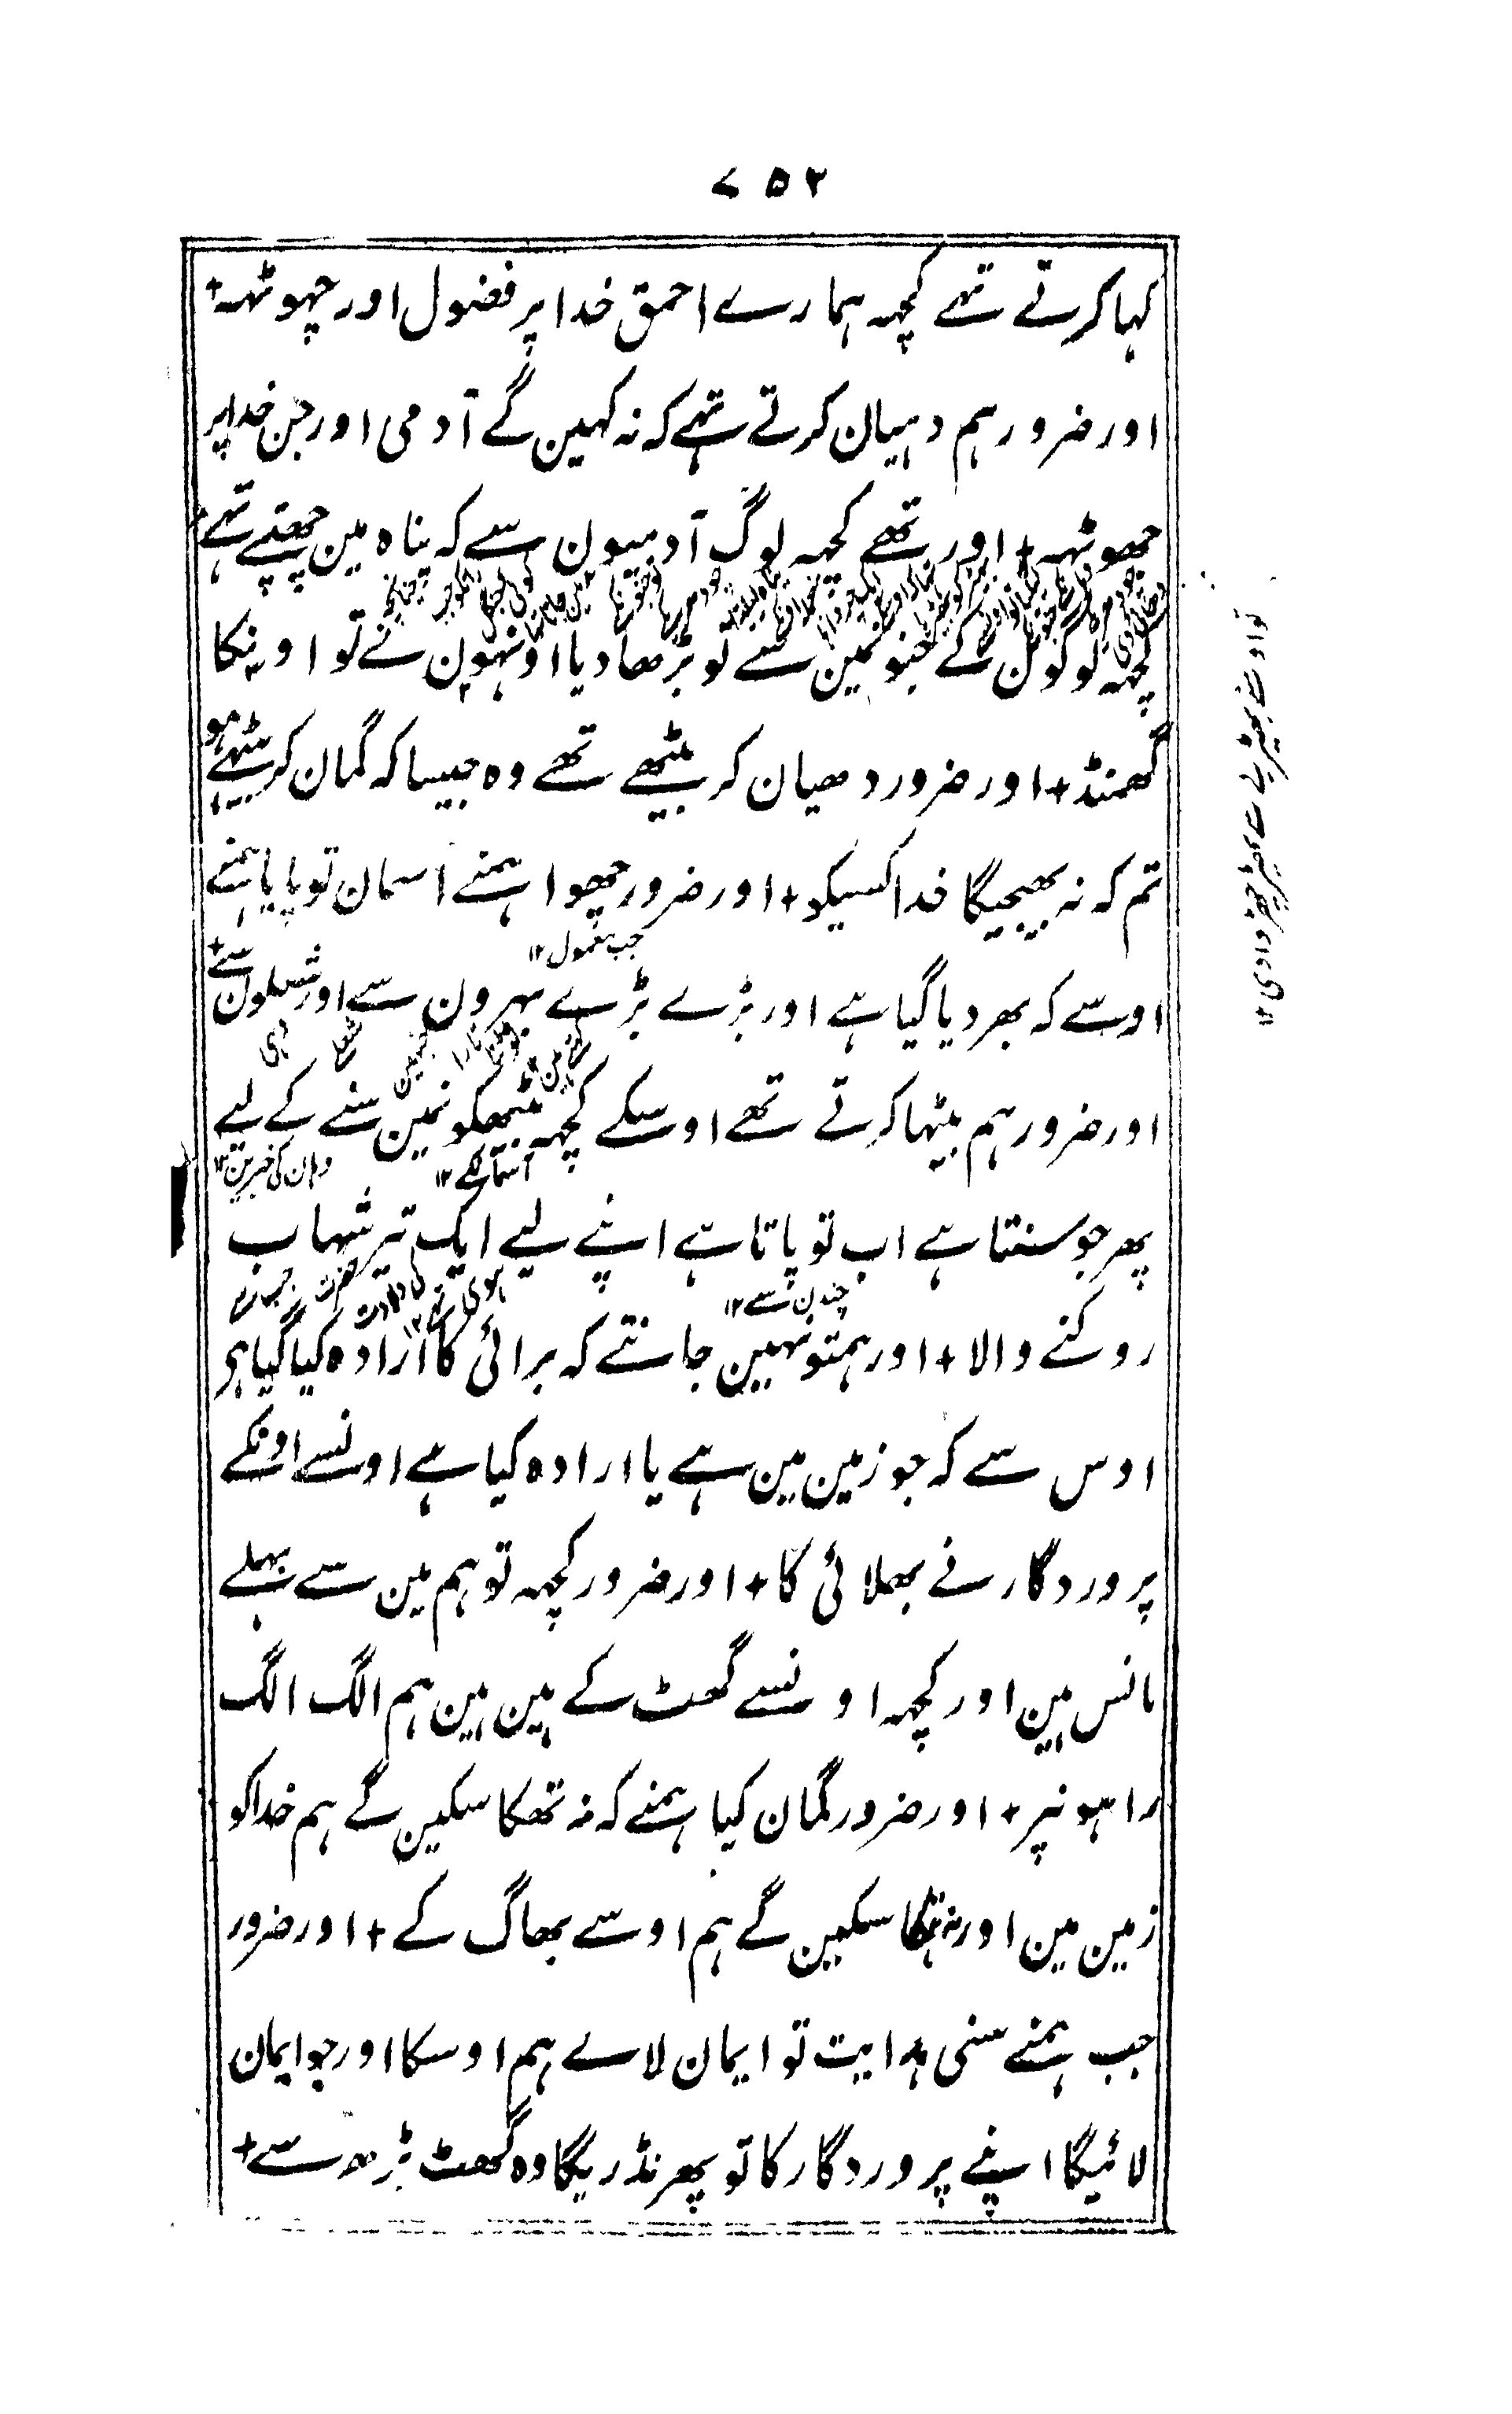 ۷۵۳
کہا کرتے تھے کچہہ ہمارے احمق خدا پر فضول اور جہوٹہہ +
اور ضرور ہم دہیان کرتے تہے کہ نہ کہین گے آدمی اور جن خدا پر
جھوٹہہ + اور تھے کچہہ لوگ آدمیون سے کہ پناہ مین چھپتے تہے
کچہہ لوگون کے جنونمین سے تو بڑھا دیا اونہون نے تو اونکا
گھمنڈ + اور ضرور دھیان کر بیٹھے تھے وہ جیسا کہ گمان کر بیٹہے ہو
تم کہ نہ بھیجیگا خدا کسیکو + اور ضرور چھوا ہمنے آسمان تو پایا ہمنے
جب معمول ۱۲
اوسے کہ بھر دیا گیا ہے اور بڑے بڑے پہرون سے اور شعلون سے +
اور ضرور ہم بیٹھا کرتے تھے اوسکے کچہہ بیٹھکونمین سننے کے لیے
آسمانکے ۱۲ وہان کی خبرین ۱۲
پھر جو سنتا ہے اب تو پاتا ہے اپنے لیے ایک تیر شہاب
چند دن سے ۱۲
روکنے والا + اور ہمتو نہین جانتے کہ برائی کا ارادہ کیا گیا ہر
اوس سے کہ جو زمین مین ہے یا ارادہ کیا ہے اونسے اونکے
پروردگار نے بھلائی کا + اور ضرور کچہہ تو ہم مین سے بھلے
مانس ہین اور کچہہ اونسے گھٹ کے ہین ہین ہم الگ الگ
راہونپر + اور ضرور گمان کیا ہمنے کہ نہ تھکا سکین گے ہم خدا کو
زمین مین اور نہ تھکا سکین گے ہم اوسے بھاگ کے + اور ضرور
جب ہمنے سنی ہدایت تو ایمان لائے ہم اوسکا اور جو ایمان
لائیگا اپنے پروردگار کا تو پھر نڈریگا وہ گھٹ بڑھ سے +